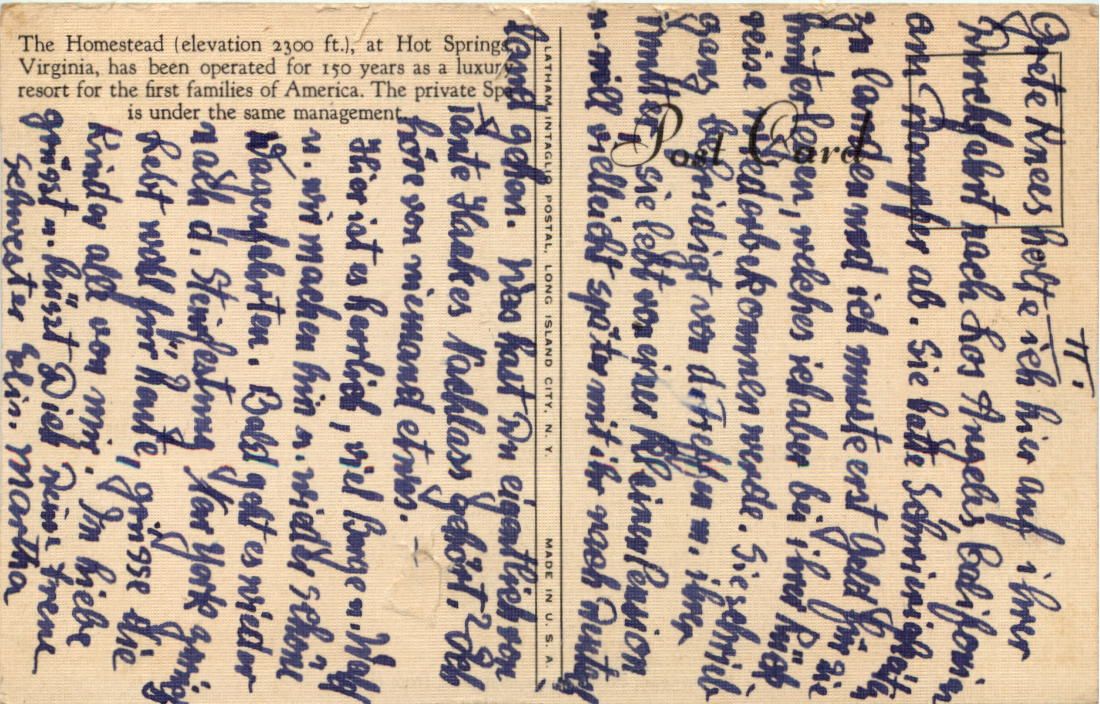 The Homestead (elevation 2300 ft.), at Hot Springs,
Virginia, has been operated for 150 years as a luxury
resort for the first families of America. The private Spa
is under the same management.
LATHAM INTAGLIO POSTAL, LONG ISLAND CITY, N. Y. MADE IN U. S. A.
Post Card
II.
Grete Knees holte ich hier auf ihrer
Durchfahrt nach Los Angeles Californien
am Dampfer ab. Sie hatte Schwierigkeiten
zu landen und ich musste erst Geld für sie
hinterlegen, welches ich aber bei ihrer Rück
reise wiederbekommen würde. Sie schrieb
ganz befriedigt von dort
Mutter, sie lebt von einer kleinen Pension
u. will vielleicht später mit ihr nach Deutsch
land gehen. Was hast Du eigentlich von
Tante Nachlass gehört? Ich
höre von niemand etwas. —
Hier ist es herrlich, viel Berge u. Wald
u. wir machen hin u. wieder schöne
Wagenfahrten. Bald geht es wieder
nach d. New York zurück
Lebt wohl für heute, grüsse die
Kinder alle von mir. In Liebe
grüsst u. küsst Dich Deine treue
Schwester Martha